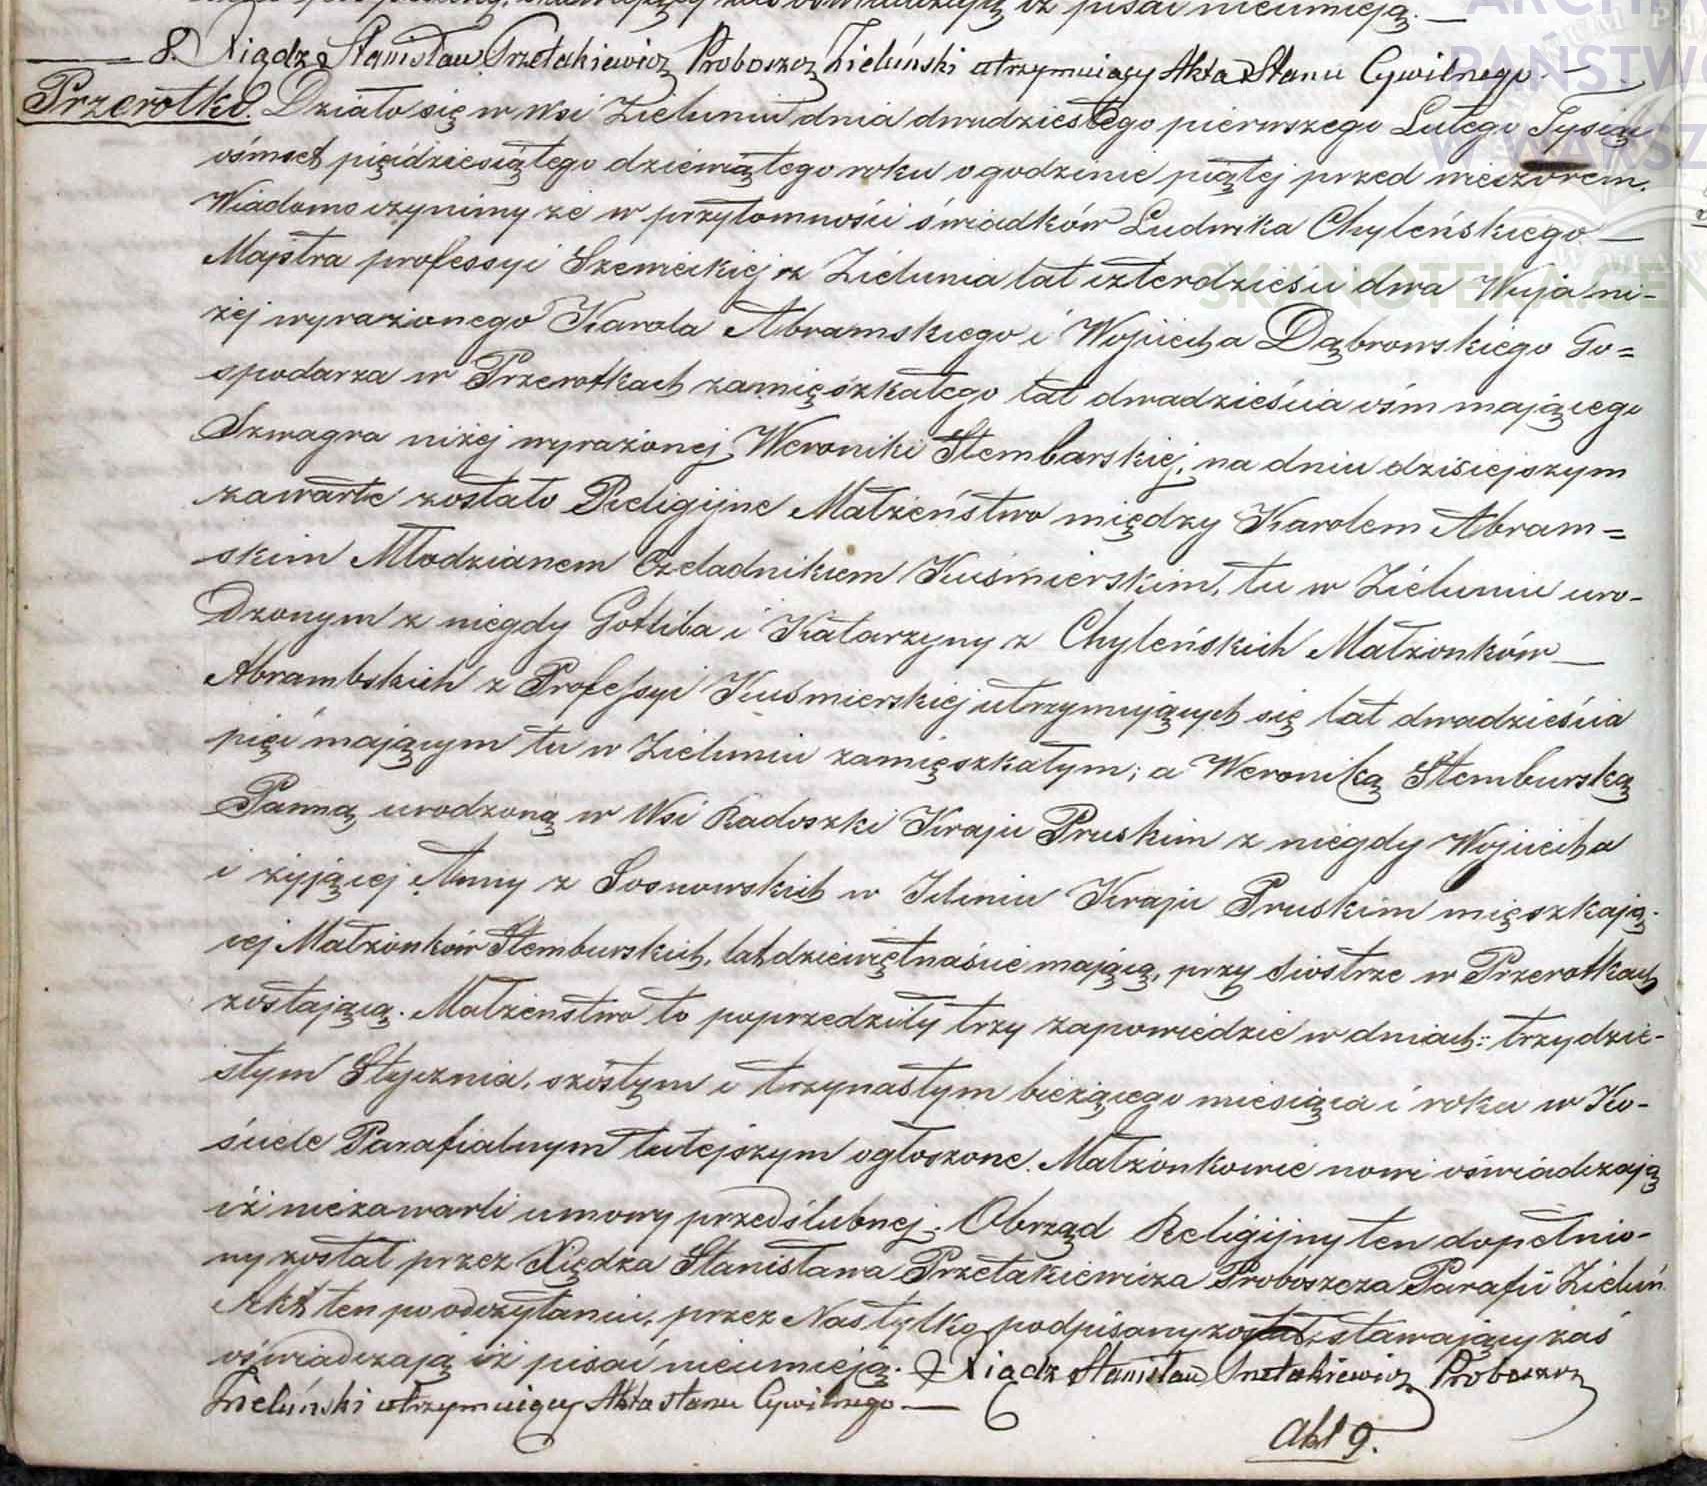 oświadczają iż pisać nieumieją. —
8. Xiądz Stanisław Przetakiewicz Proboszcz Zieluński utrzymuiący Akta Stanu Cywilnego. —
Przerotki. Działo się w Wsi Zieluniu dnia dwudziestego pierwszego Lutego Tysiąc
ośmset pięćdziesiątego dziewiątego roku o godzinie piątej przed wieczorem.
Wiadomo czynimy że w przytomności świadków Ludwika Chyleńskiego —
Majstra professyi Szewckiej z Zielunia lat czterdzieści dwa Wuja ni-
żej wyrażonego Karola Abramskiego i Wojciecha Dąbrowskiego Go=
spodarza w Przerotkach zamięszkałego lat dwadzieścia ośm mającego
Szwagra niżej wyrażonej Weroniki Stembarskiej, na dniu dzisiejszym
zawarte zostało Religijne Małżeństwo między Karolem Abram=
skim Młodzianem Czeladnikiem Kuśmierskim, tu w Zieluniu uro-
dzonym z niegdy Gotliba i Katarzyny z Chyleńskich Małżonków —
Abrambskich z Professyi Kuśmierskiej utrzymujących się lat dwadzieścia
pięć mającym tu w Zieluniu zamięszkałym; a Weroniką Stemburską
Panną urodzoną w Wsi Radoszki Kraju Pruskim z niegdy Wojciecha
i żyjącej Anny z Sosnowskich w Kraju Pruskim mięszkają-
cej Małżonków Stemburskich, lat dziewiętnaście mającą, przy Siostrze w Przerotkach
zostającą. Małżeństwo to poprzedziły trzy zapowiedzie w dniach: trzydzie-
stym Stycznia, szóstym i trzynastym bieżącego miesiąca i roku w Ko-
ściele Parafialnym tutejszym ogłoszone. Małżonkowie nowi oświadczają
iż niezawarli umowy przedślubnej. Obrząd Religijny ten dopełnio-
ny został przez Xiędza Stanisława Przetakiewicza Proboszcza Parafii Zieluń.
Akt ten po odczytaniu, przez Nas tylko podpisany został, stawający zaś
oświadczają iż pisać nieumieją. Xiądz Stanisław Przetakiewicz Proboszcz
Zieluński utrzymuiący Akta Stanu Cywilnego —
Akt 9.